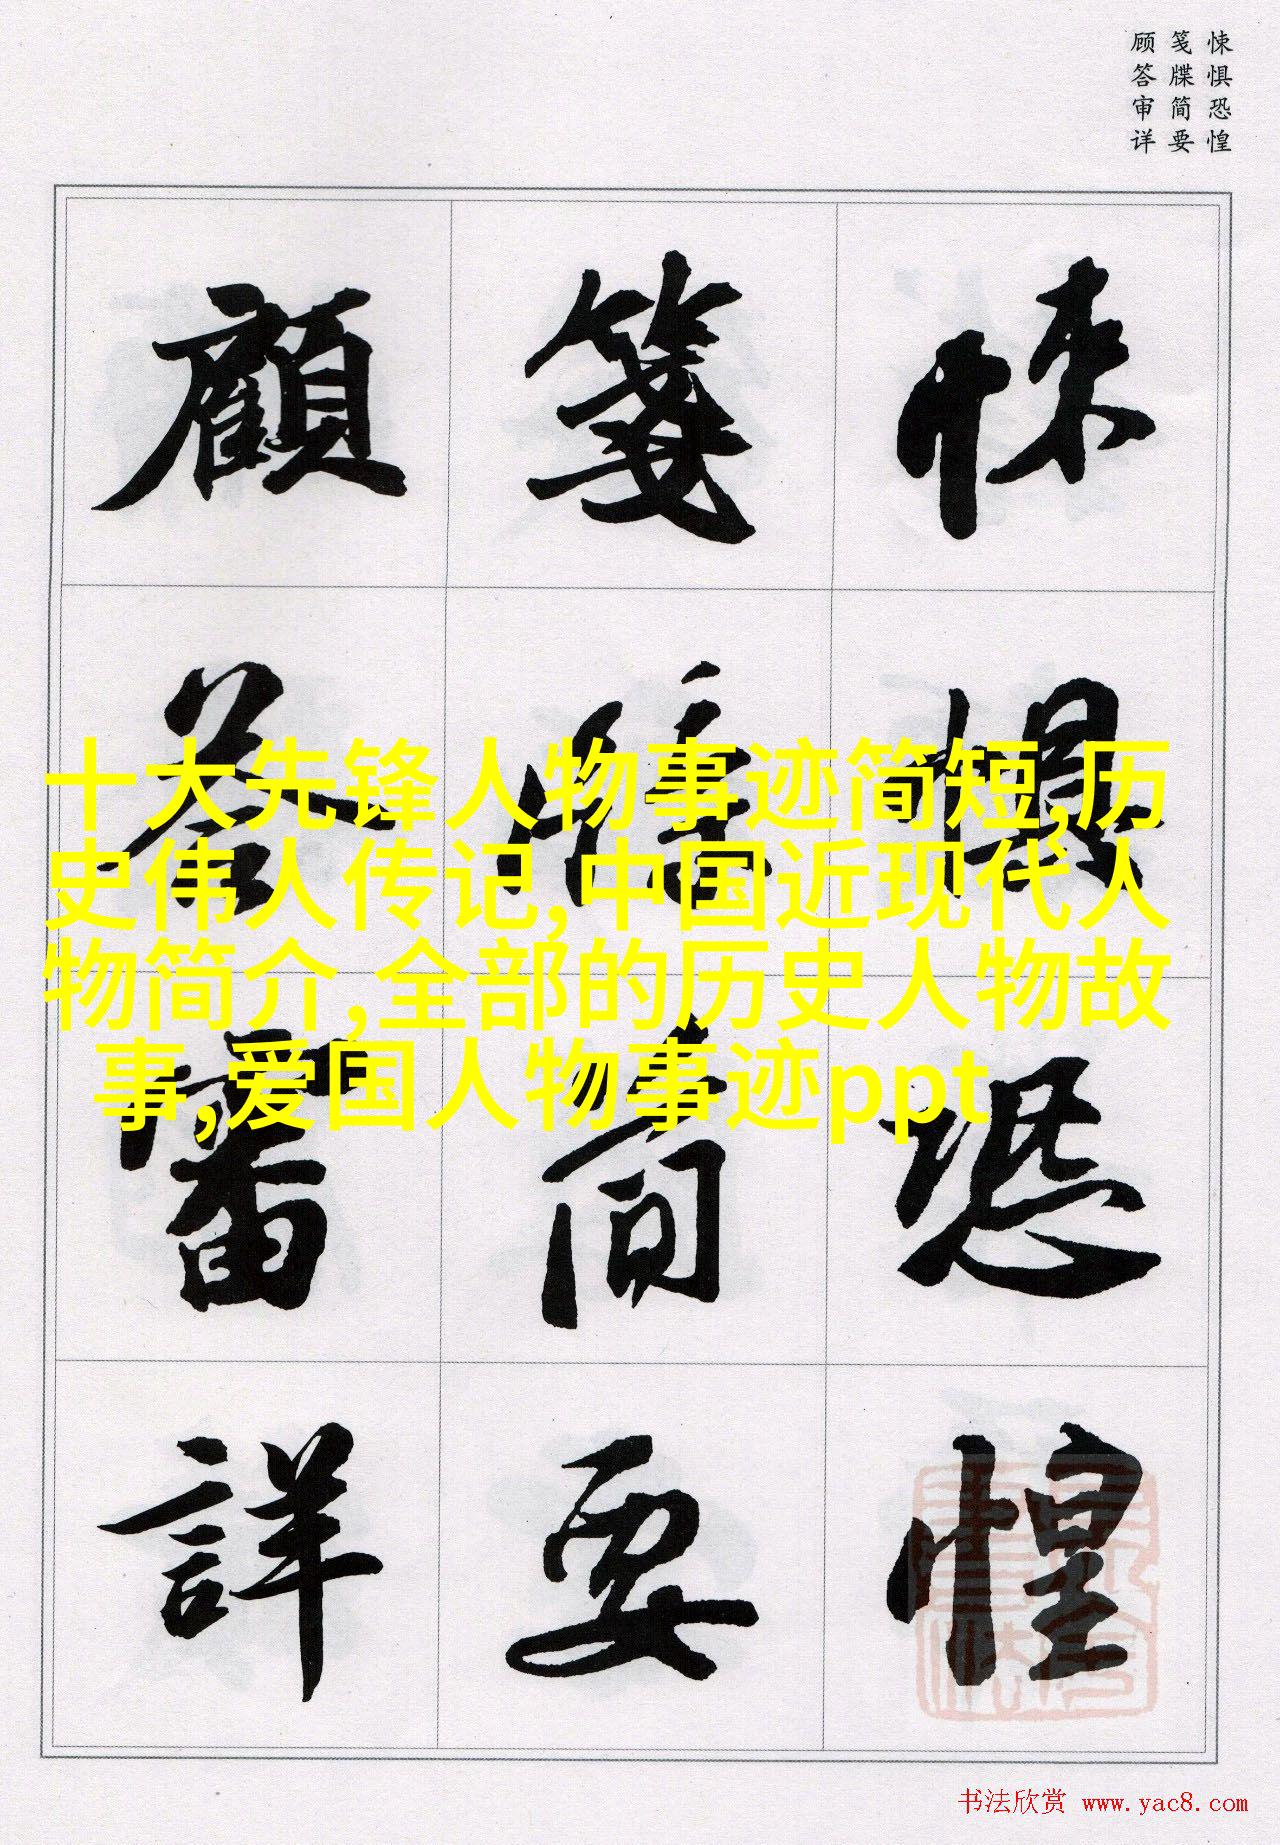 悚惧恐惶
笺牒简要
顾答审详
悚懼恐惶
箋牒簡要
顧答審詳
十大先锋人物事迹简短,历
史伟人传记,中国近现代人
物简介,全部的历史人物故
事,爱国人物事迹ppt
书法欣赏 www.yac8.com